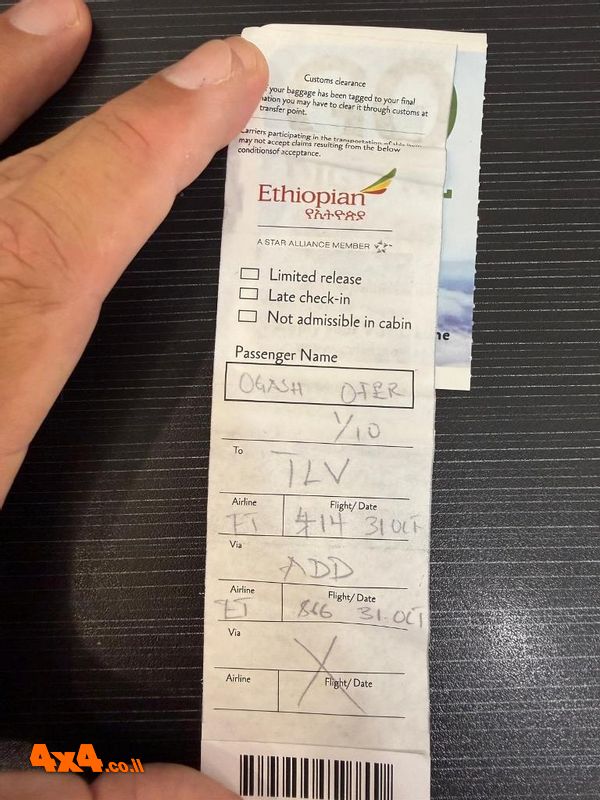 Customs clearance
your baggage has been tagged to your final
you may have to clear it through customs at
transfer point.
Carriers participating in the transportation of this item
may not accept claims resulting from the below
conditionsof acceptance.
Ethiopian
የኢትዮጵያ
A STAR ALLIANCE MEMBER
Limited release
Late check-in
Not admissible in cabin
Passenger Name
OGASH OFER
1/10
To
TLV
Airline Flight/ Date
ET 414 31 OCT
Via
ADD
Airline Flight/ Date
ET 866 31.OCT
Via
X
Airline Flight/ Date
4x4.co.il